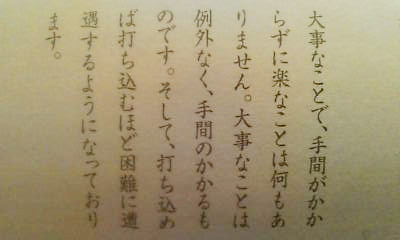 大事なことで、手間がかか
らずに楽なことは何もあ
りません。大事なことは
例外なく、手間のかかるも
のです。そして、打ち込め
ば打ち込むほど困難に遭
遇するようになっており
ます。